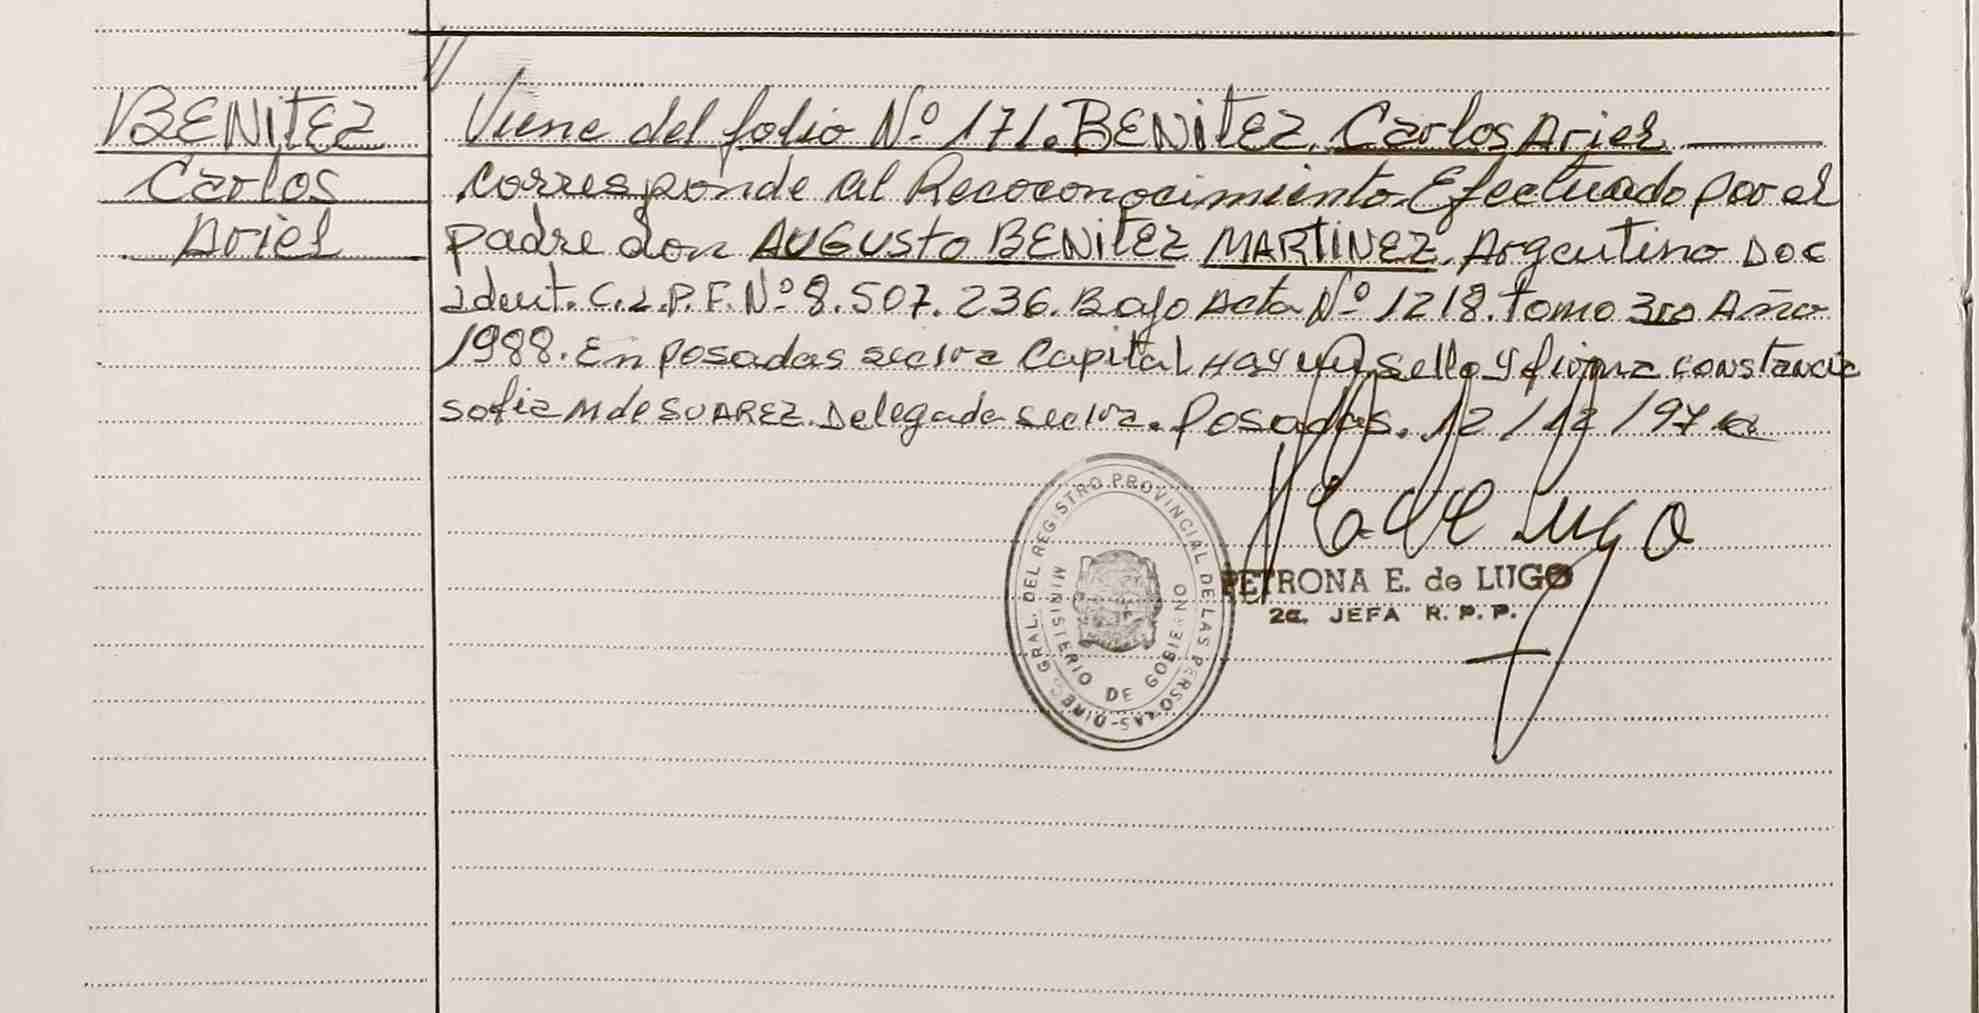 BENITEZ
Carlos
Ariel
//
Viene del folio Nº 171. BENITEZ, Carlos Ariel
corresponde al Recoconocimiento Efectuado por el
padre don AUGUSTO BENITEZ MARTINEZ, Argentino Doc
ident. C.I.P.F. Nº 8.507.236. Bajo Acta Nº 1218. tomo 3ro Año
1988. En Posadas Capital Hay un sello y firma constancia
Sofia M de SUAREZ. Delegada Posadas. 12/12/97
DIREC. GRAL. DEL REGISTRO PROVINCIAL DE LAS PERSONAS-
MINISTERIO DE GOBIERNO
de Lugo
PETRONA E. de LUGO
2a. JEFA R. P. P.